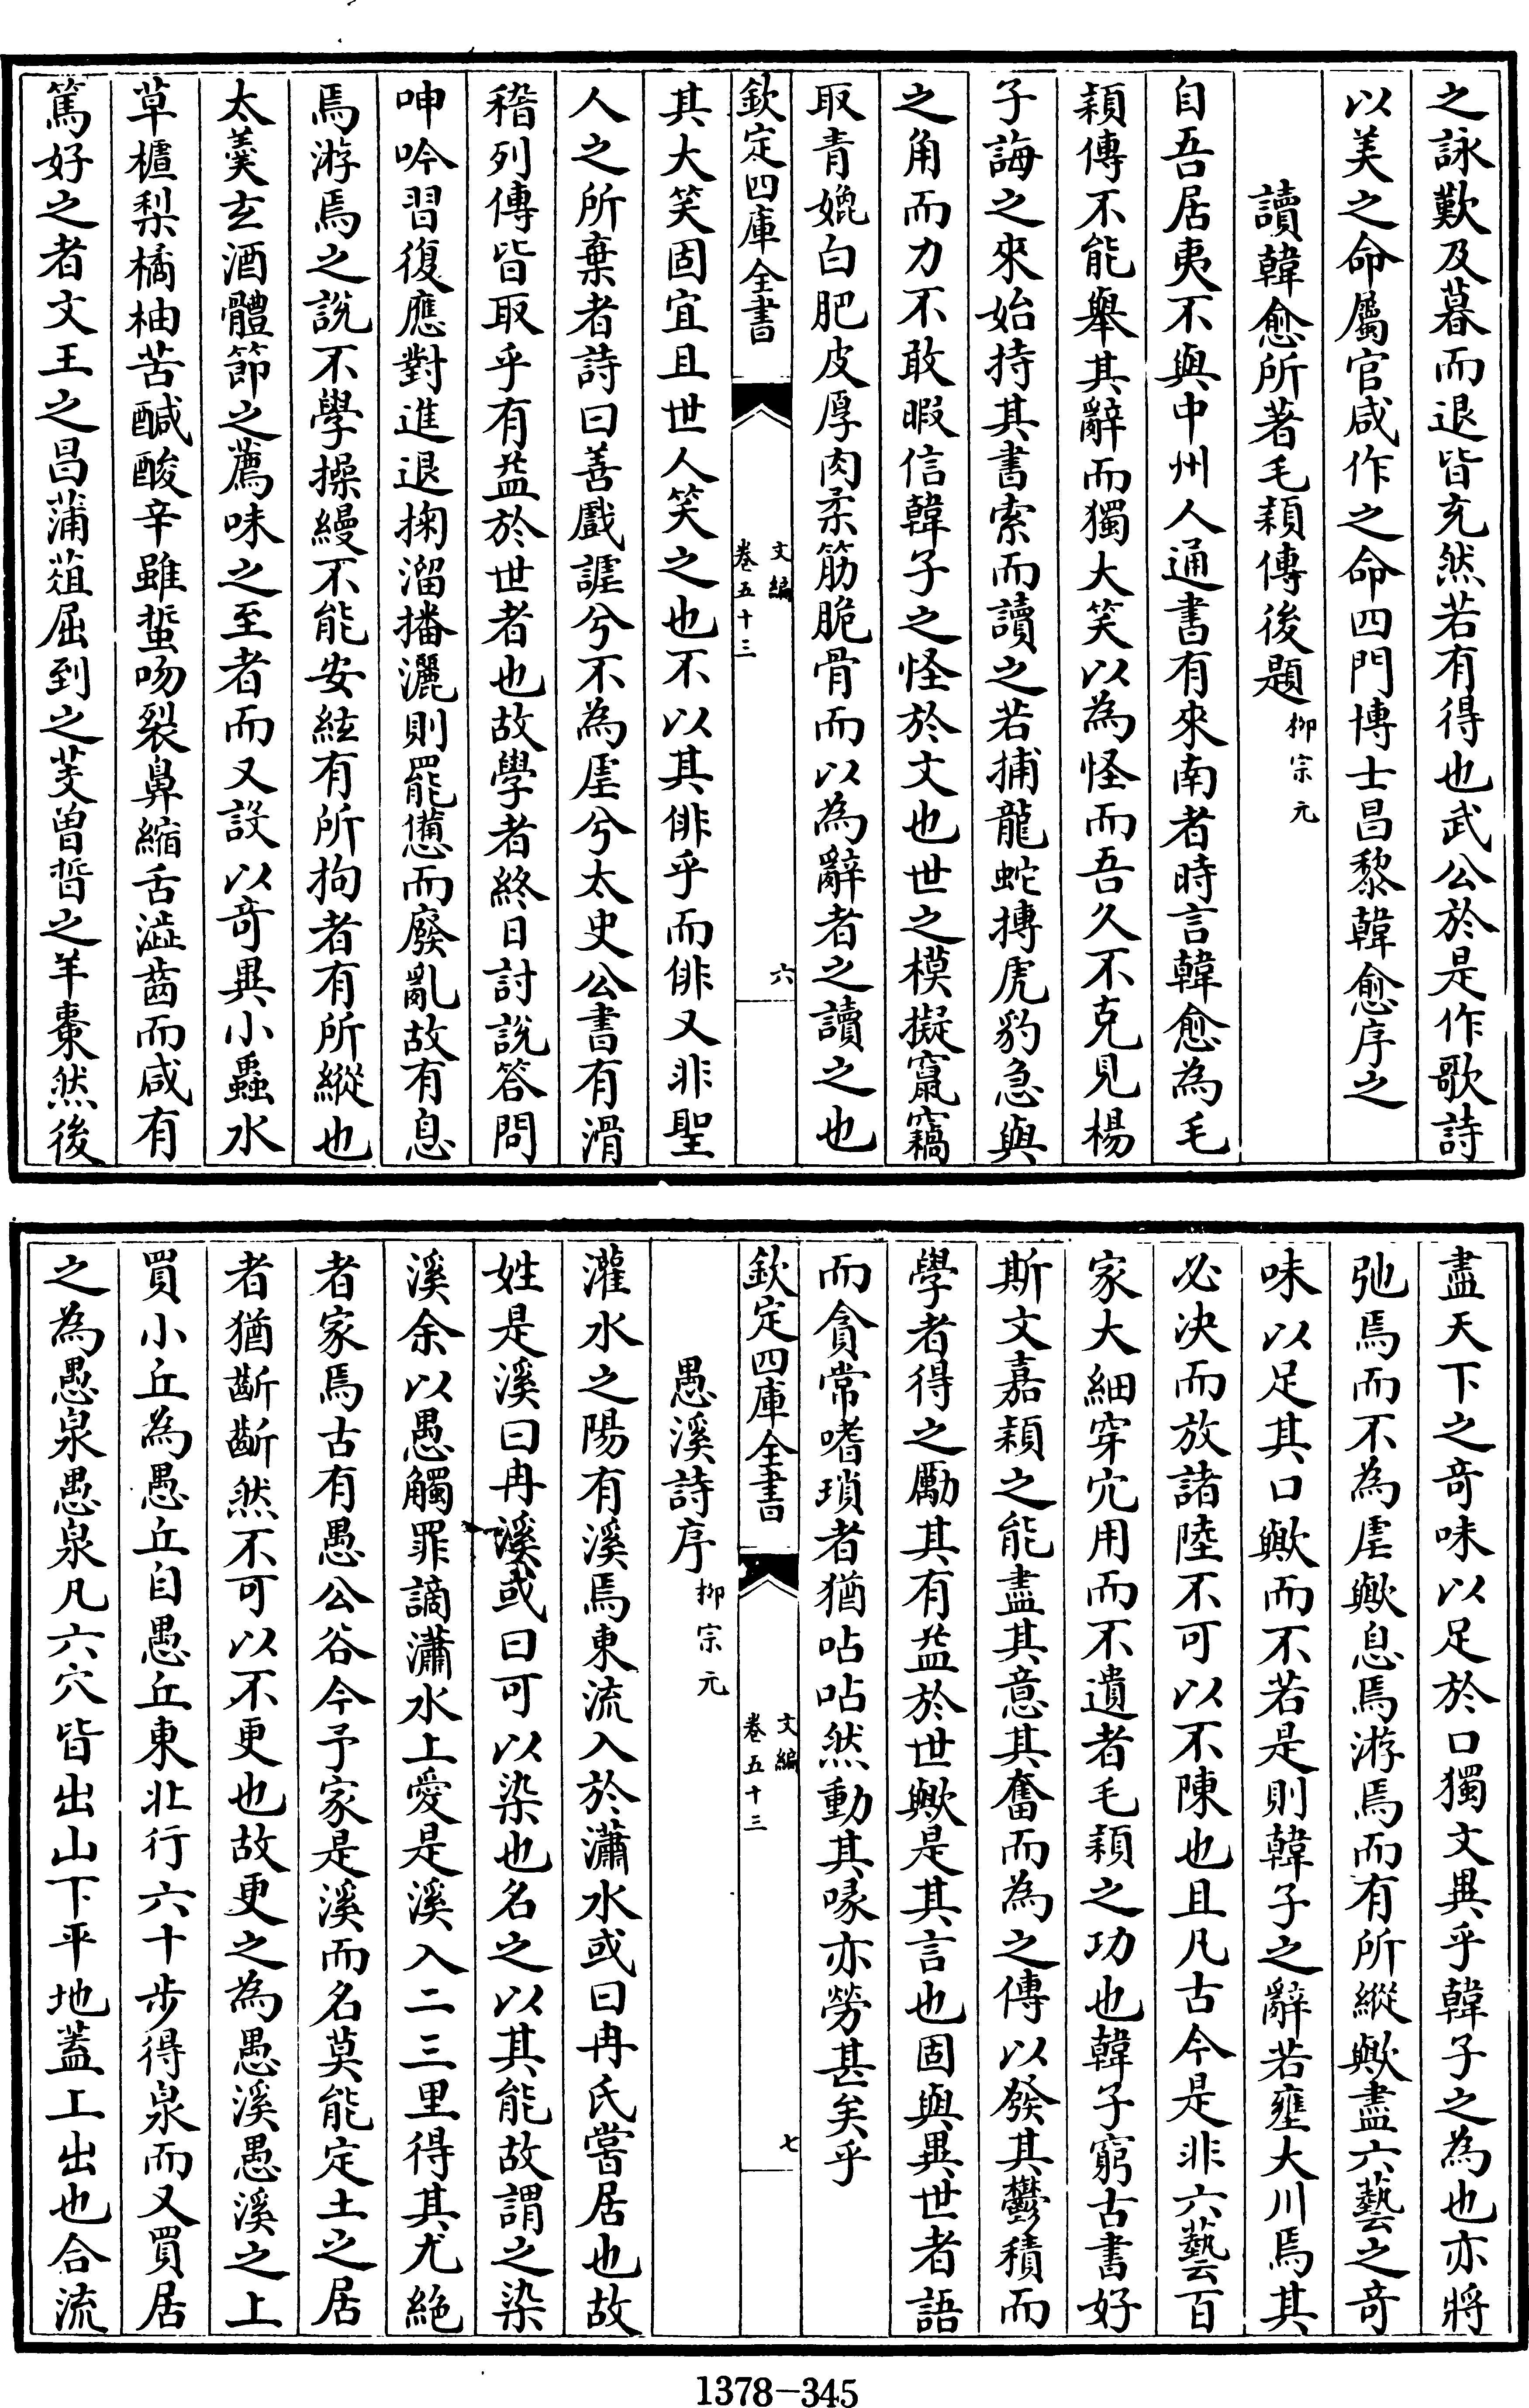 之詠歎及暮而退皆充然若有得也武公於是作歌詩
以美之命屬官咸作之命四門博士昌黎韓愈序之
讀韓愈所著毛穎傳後題柳宗元
自吾居夷不與中州人通書有來南者時言韓愈為毛
穎傳不能舉其辭而獨大笑以為怪而吾久不克見楊
子誨之來始持其書索而讀之若捕龍蛇搏虎豹急與
之角而力不敢暇信韓子之怪於文也世之模擬竄竊
取青媲白肥皮厚肉柔筋脆骨而以為辭者之讀之也
欽定四庫全書
文編
卷五十三
六
其大笑固宜且世人笑之也不以其俳乎而俳又非聖
人之所棄者詩曰善戲謔兮不為虐兮太史公書有滑
稽列傳皆取乎有益於世者也故學者終日討說答問
呻吟習復應對進退掬溜播灑則罷憊而廢亂故有息
焉游焉之說不學操縵不能安絃有所拘者有所縱也
太羹玄酒體節之薦味之至者而又設以奇異小蟲水
草樝梨橘柚苦鹹酸辛雖蜇吻裂鼻縮舌澁齒而咸有
篤好之者文王之昌蒲葅屈到之芰曾晳之羊棗然後
盡天下之奇味以足於口獨文異乎韓子之為也亦將
弛焉而不為虐歟息焉游焉而有所縱歟盡六藝之奇
味以足其口歟而不若是則韓子之辭若壅大川焉其
必决而放諸陸不可以不陳也且凡古今是非六藝百
家大細穿穴用而不遺者毛穎之功也韓子窮古書好
斯文嘉穎之能盡其意其奮而為之傳以發其鬱積而
學者得之勵其有益於世歟是其言也固與異世者語
而貪常嗜瑣者猶呫呫然動其喙亦勞甚矣乎
欽定四庫全書
文編
卷五十三
七
愚溪詩序柳宗元
灌水之陽有溪焉東流入於瀟水或曰冉氏嘗居也故
姓是溪曰冉溪或曰可以染也名之以其能故謂之染
溪余以愚觸罪謫瀟水上愛是溪入二三里得其尤絶
者家焉古有愚公谷今予家是溪而名莫能定土之居
者猶齗齗然不可以不更也故更之為愚溪愚溪之上
買小丘為愚丘自愚丘東北行六十步得泉而又買居
之為愚泉愚泉凡六穴皆出山下平地蓋上出也合流
1378-345